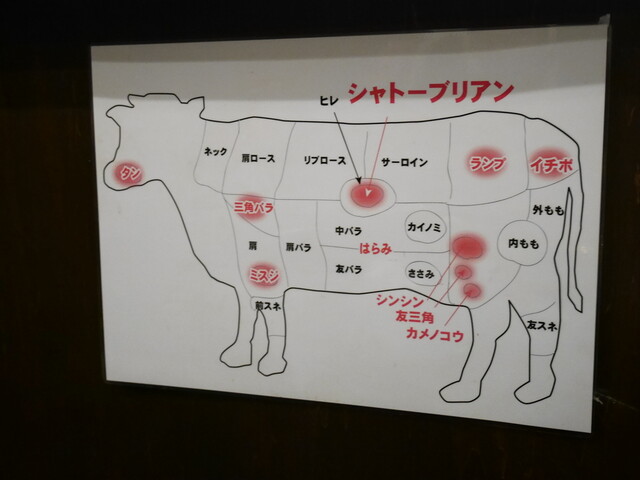 シャトーブリアン
ヒレ
ネック
肩ロース
リブロース
サーロイン
ランプ
イチボ
タン
三角バラ
中バラ
カイノミ
外もも
はらみ
内もも
肩
肩バラ
友バラ
ささみ
ミスジ
シンシン
前スネ
友三角
カメノコウ
友スネ